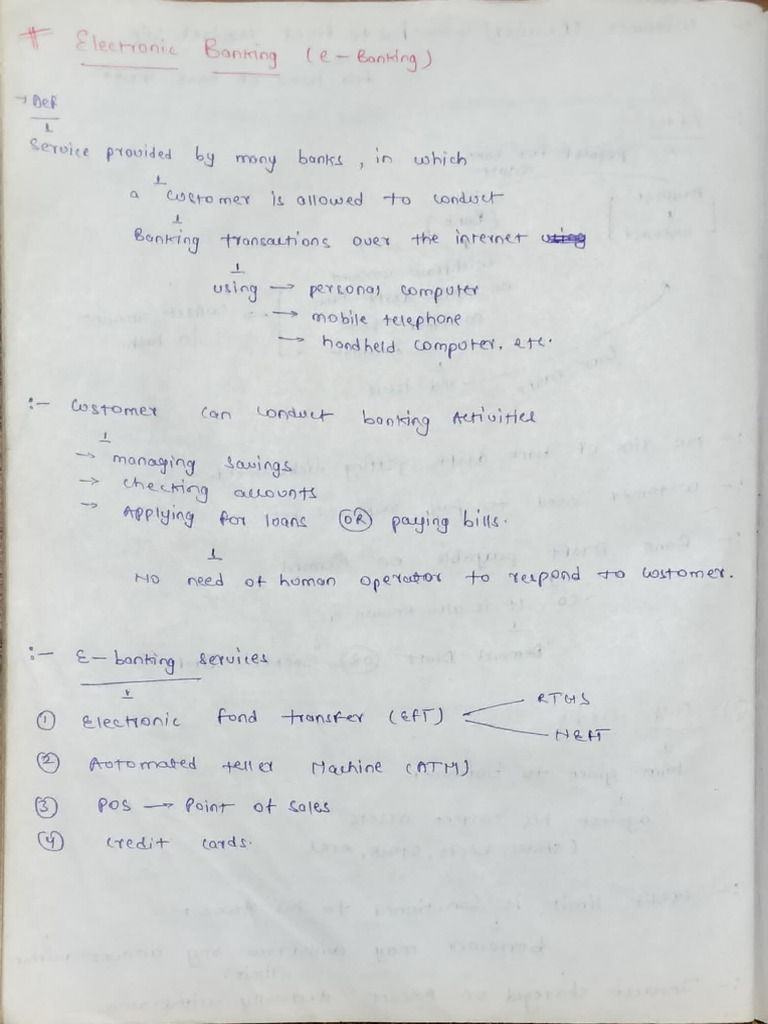 # Electronic Banking (e-Banking)
→ Def
Service provided by many banks, in which
a customer is allowed to conduct
Banking transactions over the internet
using → personal computer
→ mobile telephone
→ handheld computer, etc.
:- Customer can conduct banking Activities
→ managing savings
→ checking accounts
→ Applying for loans OR paying bills.
NO need of human operator to respond to customer.
:- E-banking services
① Electronic fund transfer (EFT) RTGS
NEFT
② Automated teller Machine (ATM)
③ POS → Point of sales
④ credit cards.